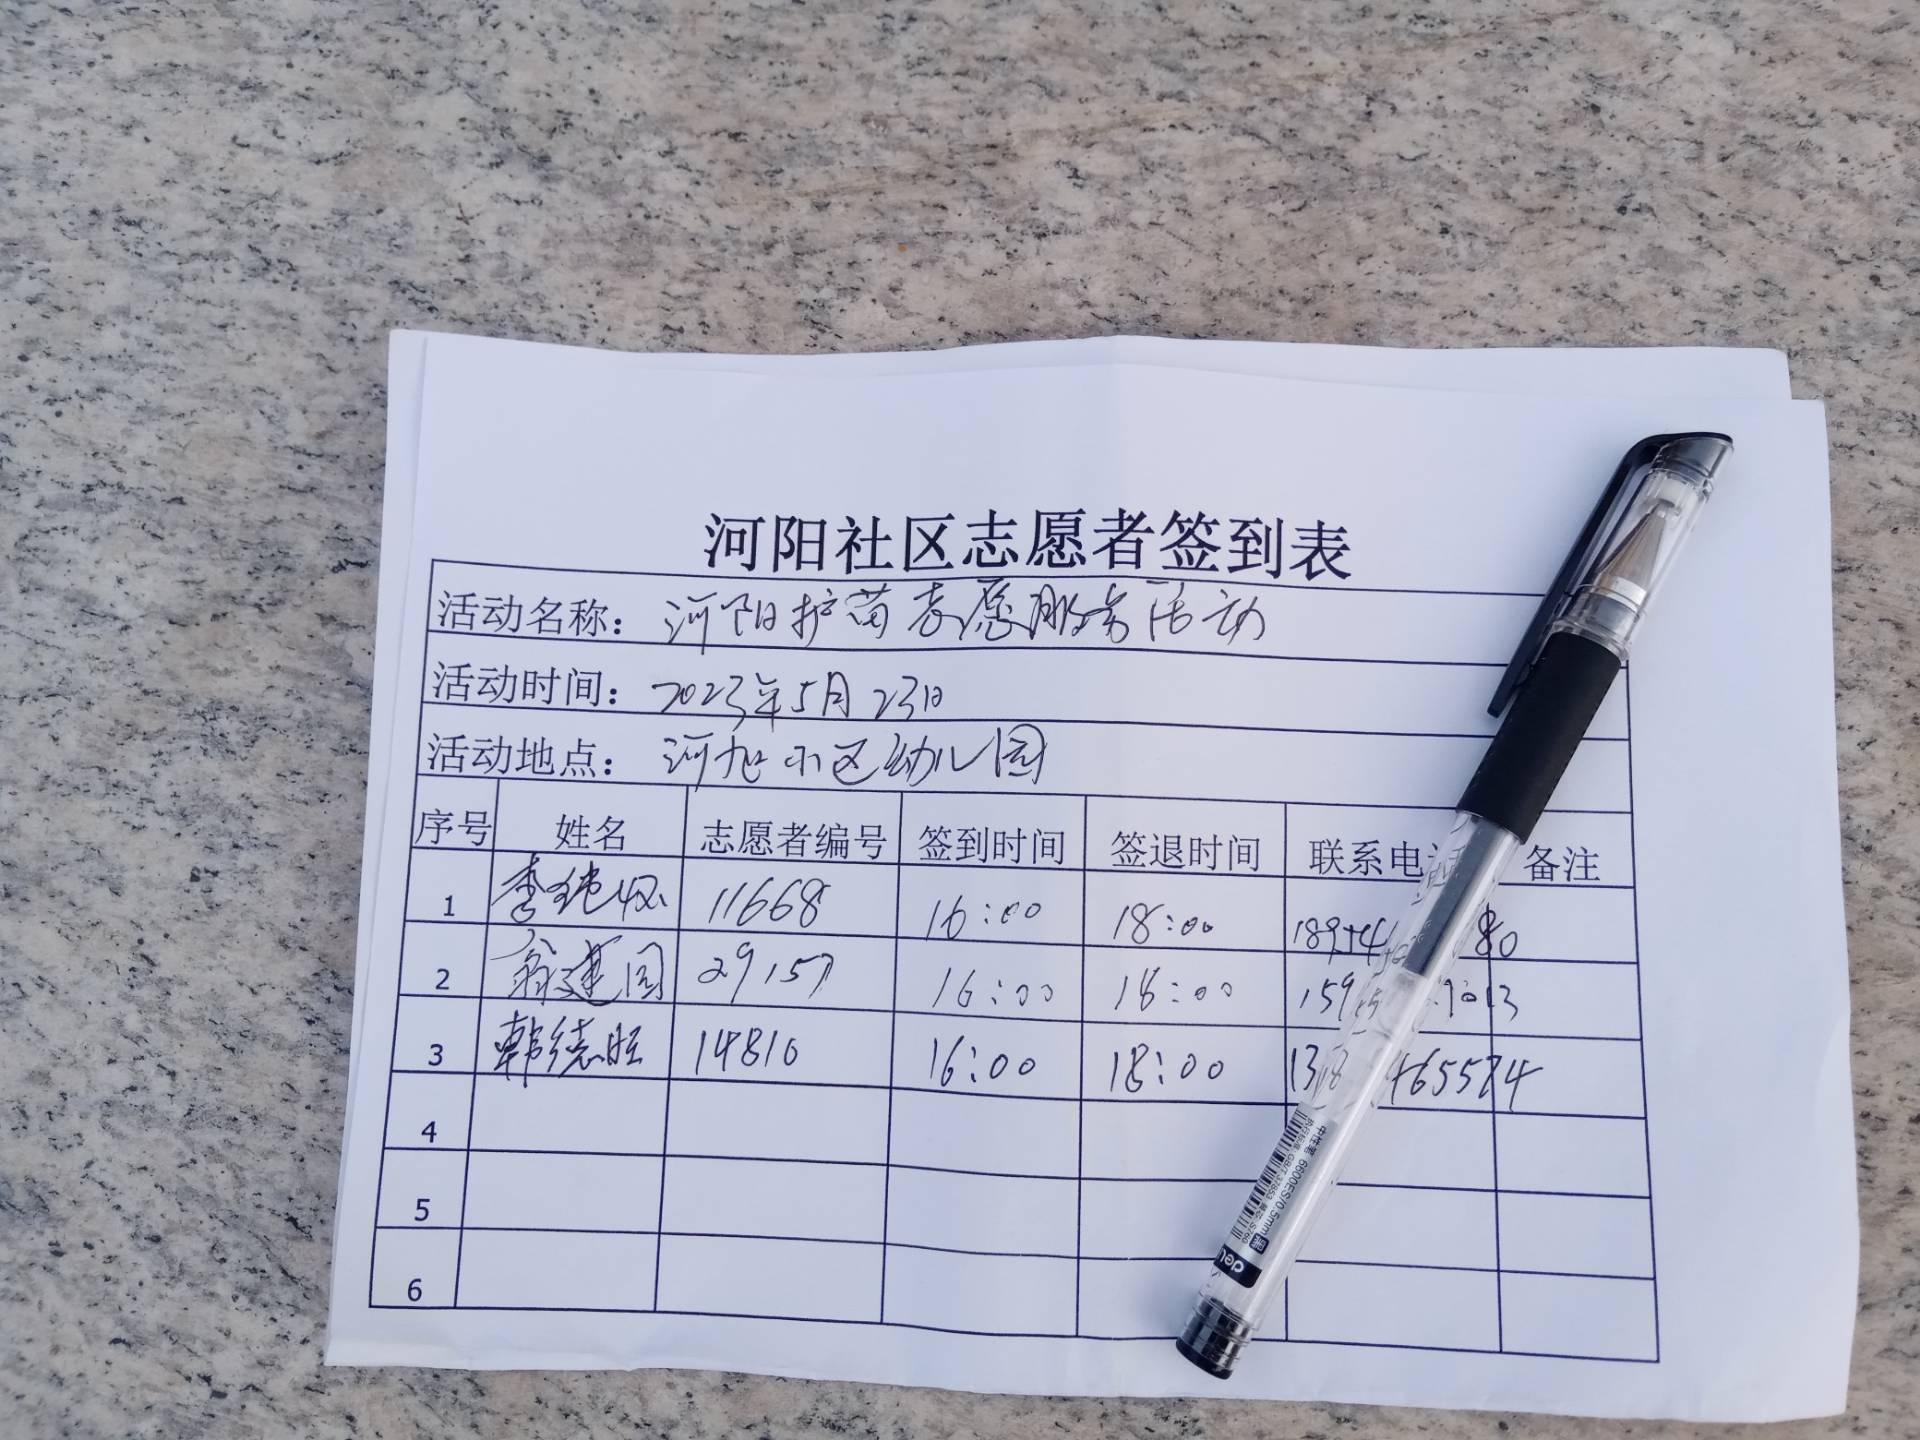 河阳社区志愿者签到表
活动名称：河阳护苗志愿服务活动
活动时间：2023年5月23日
活动地点：河旭小区幼儿园
序号 姓名 志愿者编号 签到时间 签退时间 联系电话 备注
1 11668 16:00 18:00
2 翁建国 29157 16:00 18:00
3 韩德旺 14810 16:00 18:00
4
5
6
中性笔 6600ES/0.5mm 黑
执行标准: GB/T 37853
deli